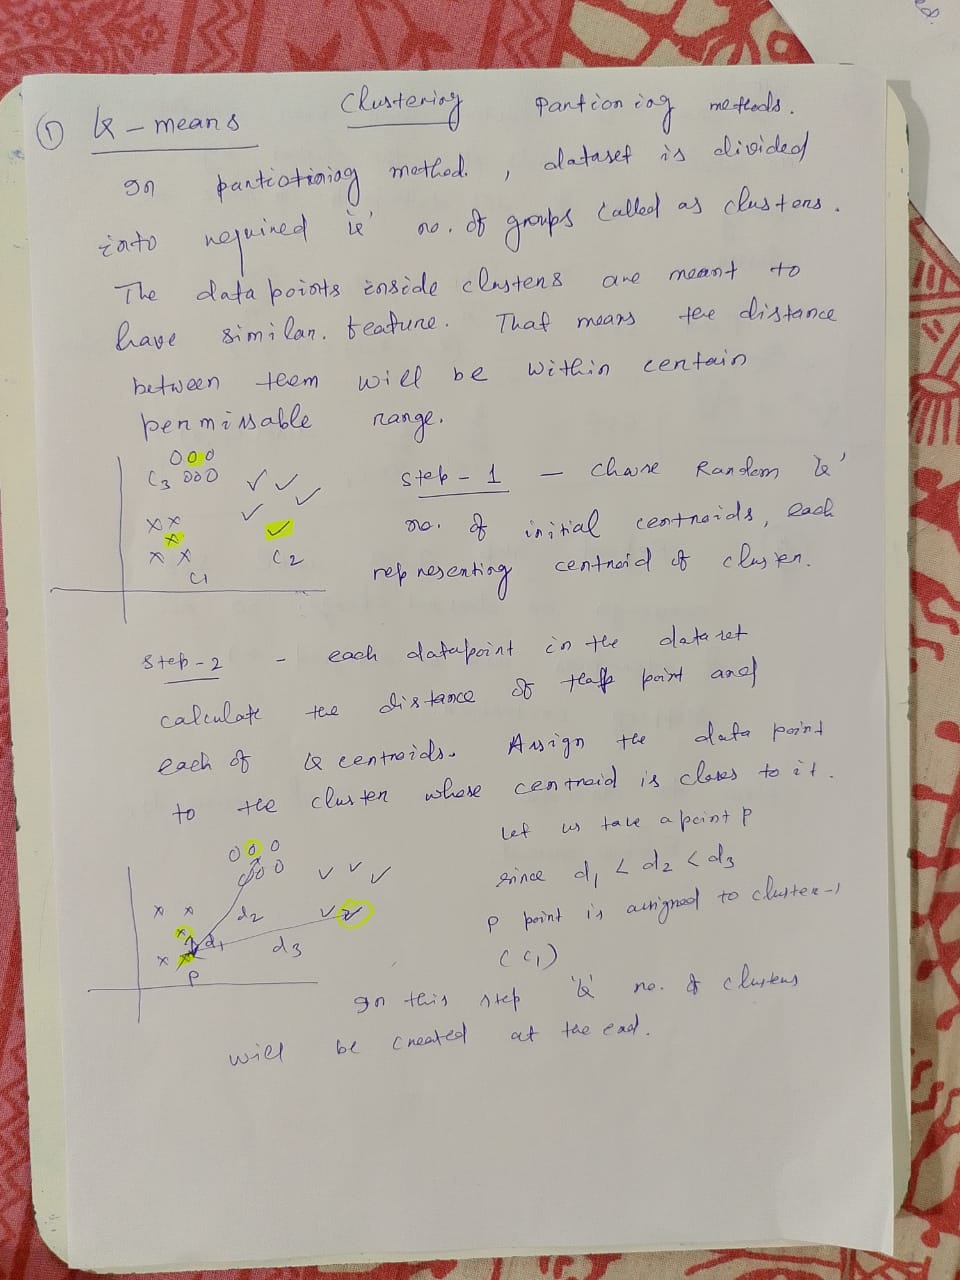 ① k-means Clustering Pantioniog methods.
In pantiotioiog method. , dataset is divided
into required 'k' no. of groups called as clusters.
The data points inside clusters are meant to
have similar. feature. That means the distance
between them will be within certain
permissable range.
C3
C1
C2
Step-1 - Chose Random 'k'
no. of initial centroids, each
representing centroid of cluster.
Step-2 - each datapoint in the dataset
calculate the distance of that point and
each of k centroids. Assign the data point
to the cluster whose centroid is closes to it.
Let us take a point P
since d1 < d2 < d3
P point is assigned to cluster-1
(C1)
d2
d1
d3
P
In this step 'k' no. of clusters
will be created at the end.